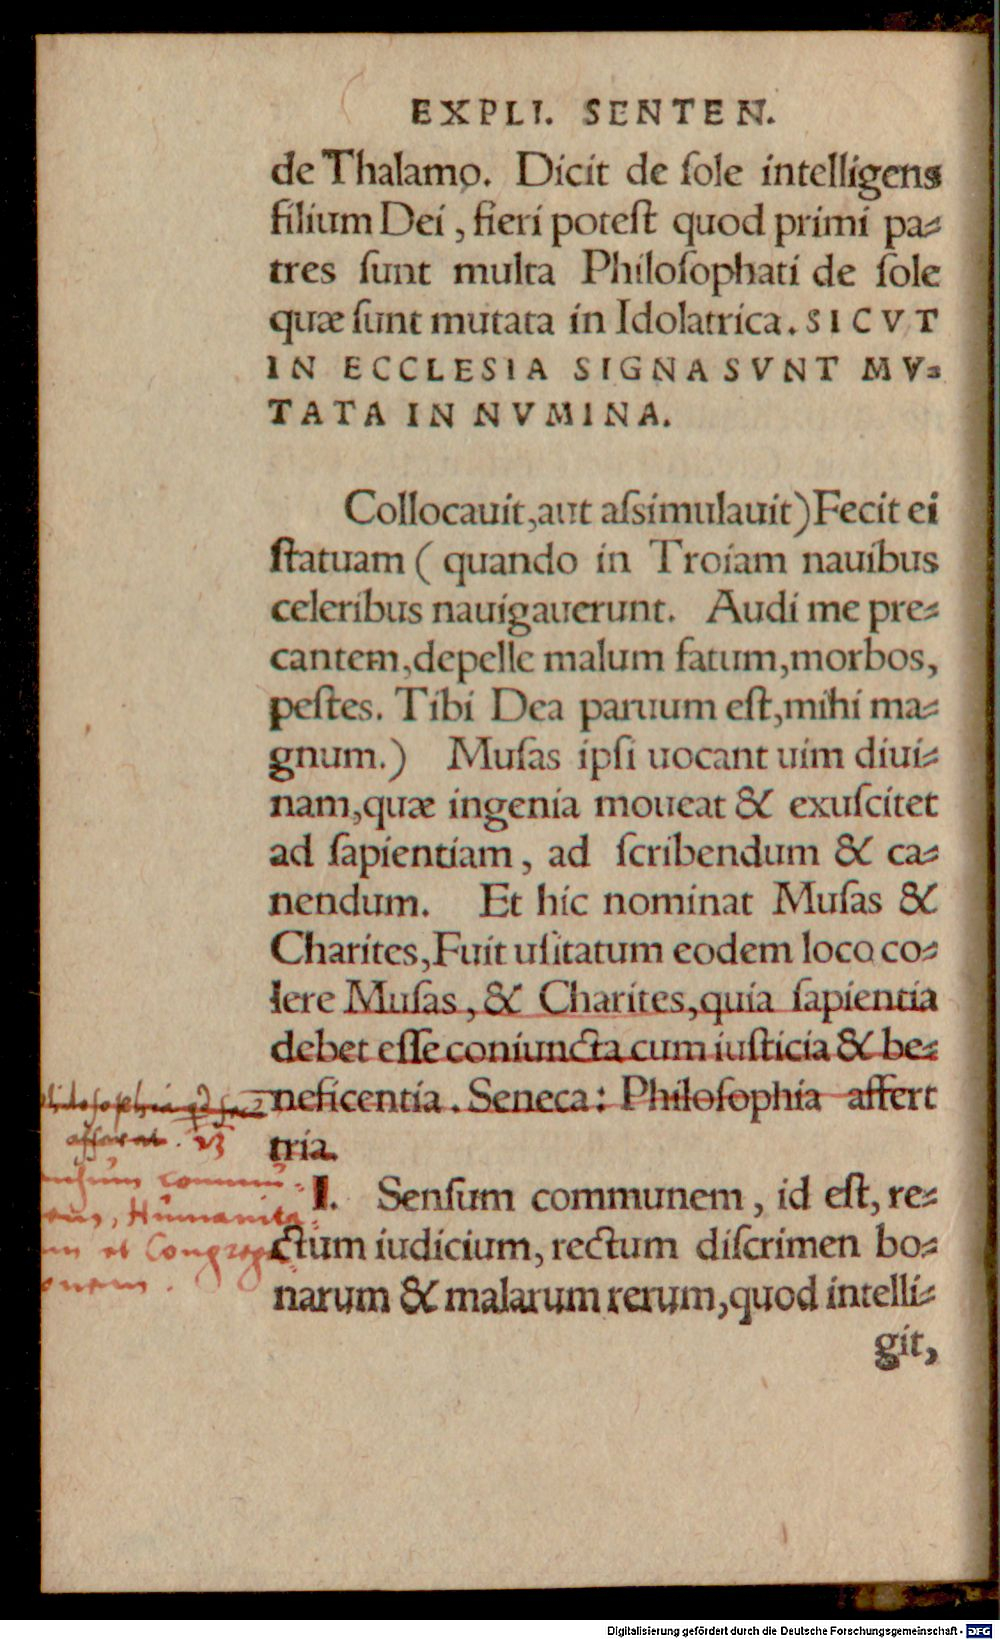 EXPLI. SENTEN.
de Thalamo. Dicit de ſole intelligens
filium Dei, fieri poteſt quod primi pa-
tres ſunt multa Philoſophati de ſole
quæ ſunt mutata in Idolatrica. SICVT
IN ECCLESIA SIGNA SVNT MV-
TATA IN NVMINA.
Collocauit, aut aſsimulauit) Fecit ei
ſtatuam ( quando in Troiam nauibus
celeribus nauigauerunt. Audi me pre-
cantem, depelle malum fatum, morbos,
peſtes. Tibi Dea paruum eſt, mihi ma-
gnum.) Muſas ipſi uocant uim diui-
nam, quæ ingenia moueat & exuſcitet
ad ſapientiam, ad ſcribendum & ca-
nendum. Et hic nominat Muſas &
Charites, Fuit uſitatum eodem loco co-
lere Muſas, & Charites, quia ſapientia
debet eſſe coniuncta cum iuſticia & be-
neficentia. Seneca: Philoſophia affert
tria.
I. Senſum communem, id eſt, re-
ctum iudicium, rectum diſcrimen bo-
narum & malarum rerum, quod intelli-
git,
commu-
Humanita-
et Congrega-
onem.
Digitalisierung gefördert durch die Deutsche Forschungsgemeinschaft - DFG